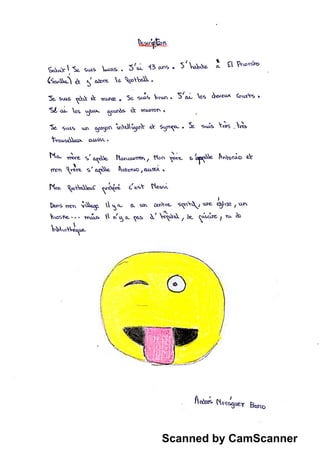 Description
Salut! Je suis Lucas. J'ai 13 ans. J'habite à El Priorato
(Seville) et j'adore le football.
Je suis petit et mince. Je suis brun. J'ai les cheveux courts.
J'ai les yeux grands et marron.
Je suis un garçon intelligent et sympa. Je suis très, très
travailleur aussi.
Ma mère s'apelle Mancarmen, Mon père s'apelle Antonio et
mon frère s'apelle Antonio, aussi.
Mon footballeur préféré c'est Messi
Dans mon village Il y a a un centre sportif, une église, un
kioske... mais Il n'y a pas d'hôpital, de piscine, ni de
bibliothèque.
Andrés
Scanned by CamScanner